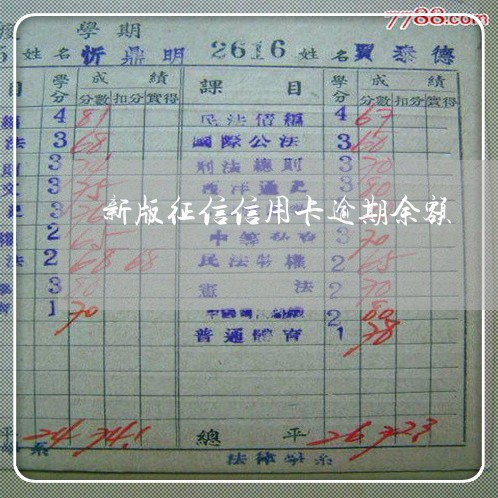 7788.com
學期
姓名 忻鼎明 2616 姓名 賈泰德
目 學分 成績 課目 學分 成績
分數 扣分 實得 分數 扣分 實得
4 81 民法債編 4 67
法 3 68 國際公法 3 60
3 刑法總則 3 70
3 75 西洋通史 3 80
新版征信信用卡逾期余额
2 65 3 70
法 2 68 68 民法物權 2 65
3 80 憲法 2 70
1 70 2 80
普通體育 1 78
平 24 74.1 總平 26 72.3
系 法律學系